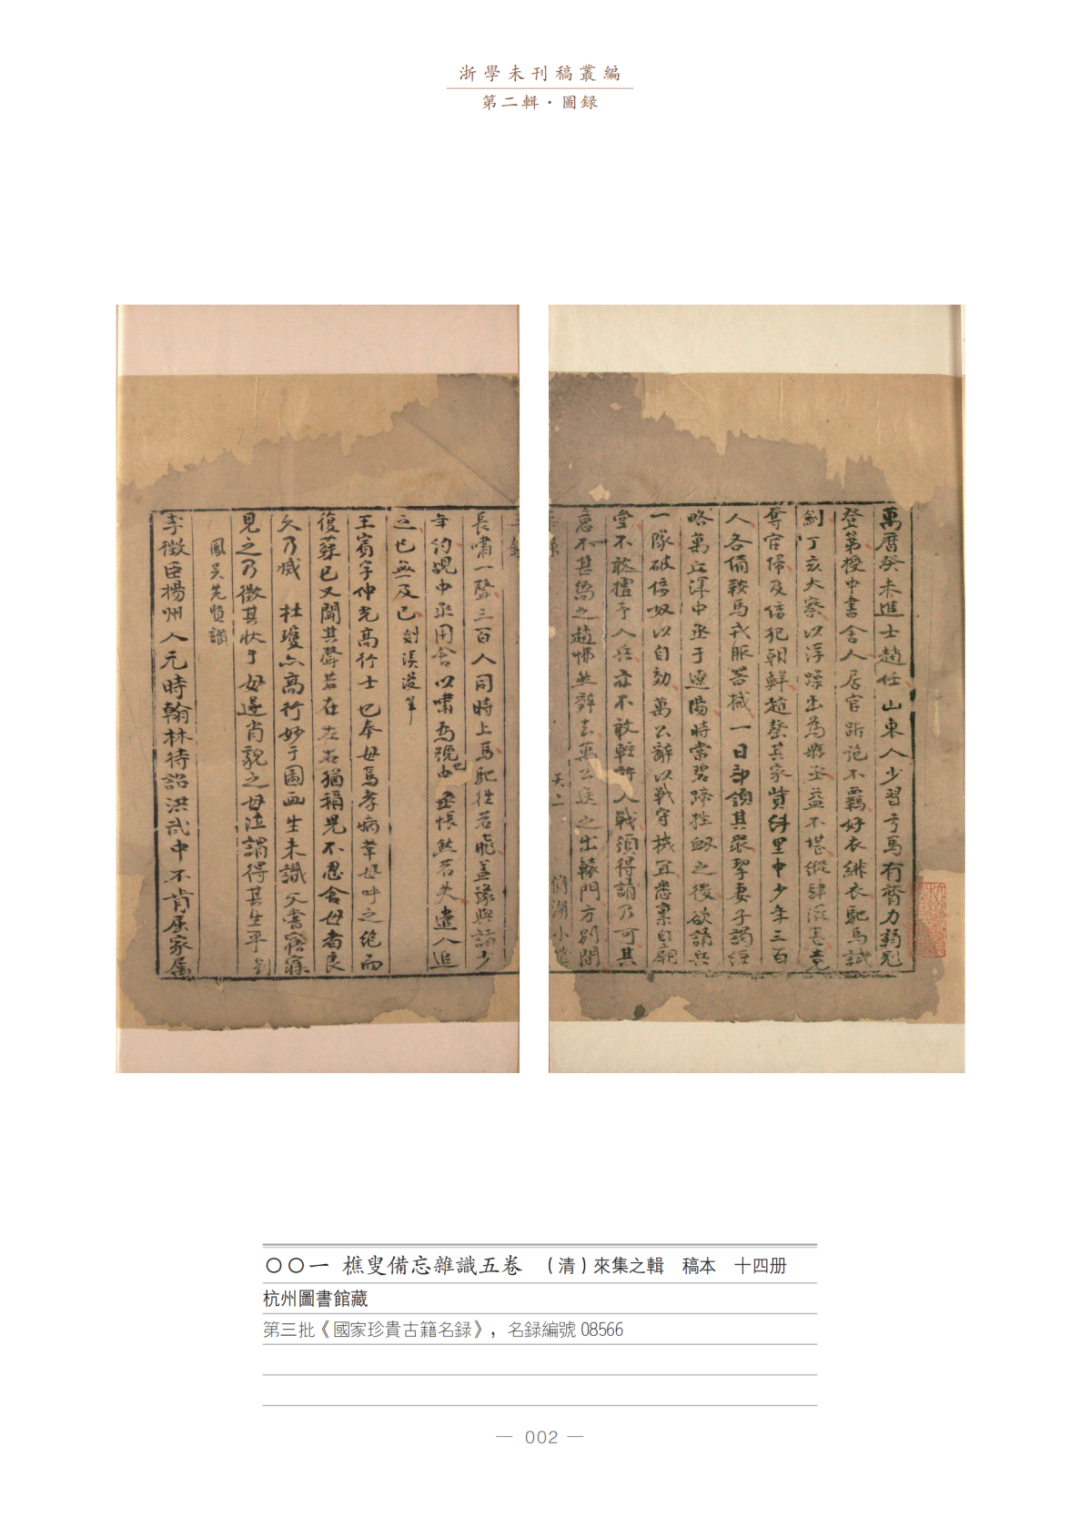 浙學未刊稿叢編
第二輯·圖録
萬曆癸未進士趙任山東人少習弓馬有膂力弱冠
登第授中書舍人居官跅弛不羈好衣緋衣馳馬試
劍丁亥大察以浮躁出為縣丞益不堪縱肆滋甚竟
奪官歸及倭犯朝鮮趙罄其家貲糾里中少年三百
人各備鞍馬戎服器械一日部領其眾挈妻子謁經
略萬丘澤中丞于遼陽時當碧蹄挫衂之後欲請兵
一隊破倭奴以自効萬公辭以戰守機宜悉稟自廟
堂不敢擅予人兵亦不敢輕許人戰須得請乃可其
意不甚為之趙怫然辭去萬公送之出轅門方別間
天二 倘湖小築
長嘯一聲三百人同時上馬馳往若飛蓋豫與諸少
年約覘中丞用舍以嘯為號也中丞悵然若失遣人追
之已無及已 剡溪漫筆
王賓字仲光高行士也奉母篤孝病革母呼之絕而
復蘇已又聞其聲若在左右猶裯兒不忍舍母者良
久乃滅 杜瓊亦高行妙于圖画生未識父嘗寤寐
見之乃徵其状于母遂肖貌之母泣謂得其生平 劉
鳳吳先賢讃
李徵臣揚州人元時翰林待詔洪武中不肯屈家屬
〇〇一 樵叟備忘雜識五卷 （清）來集之輯 稿本 十四册
杭州圖書館藏
第三批《國家珍貴古籍名録》，名録編號 08566
— 002 —